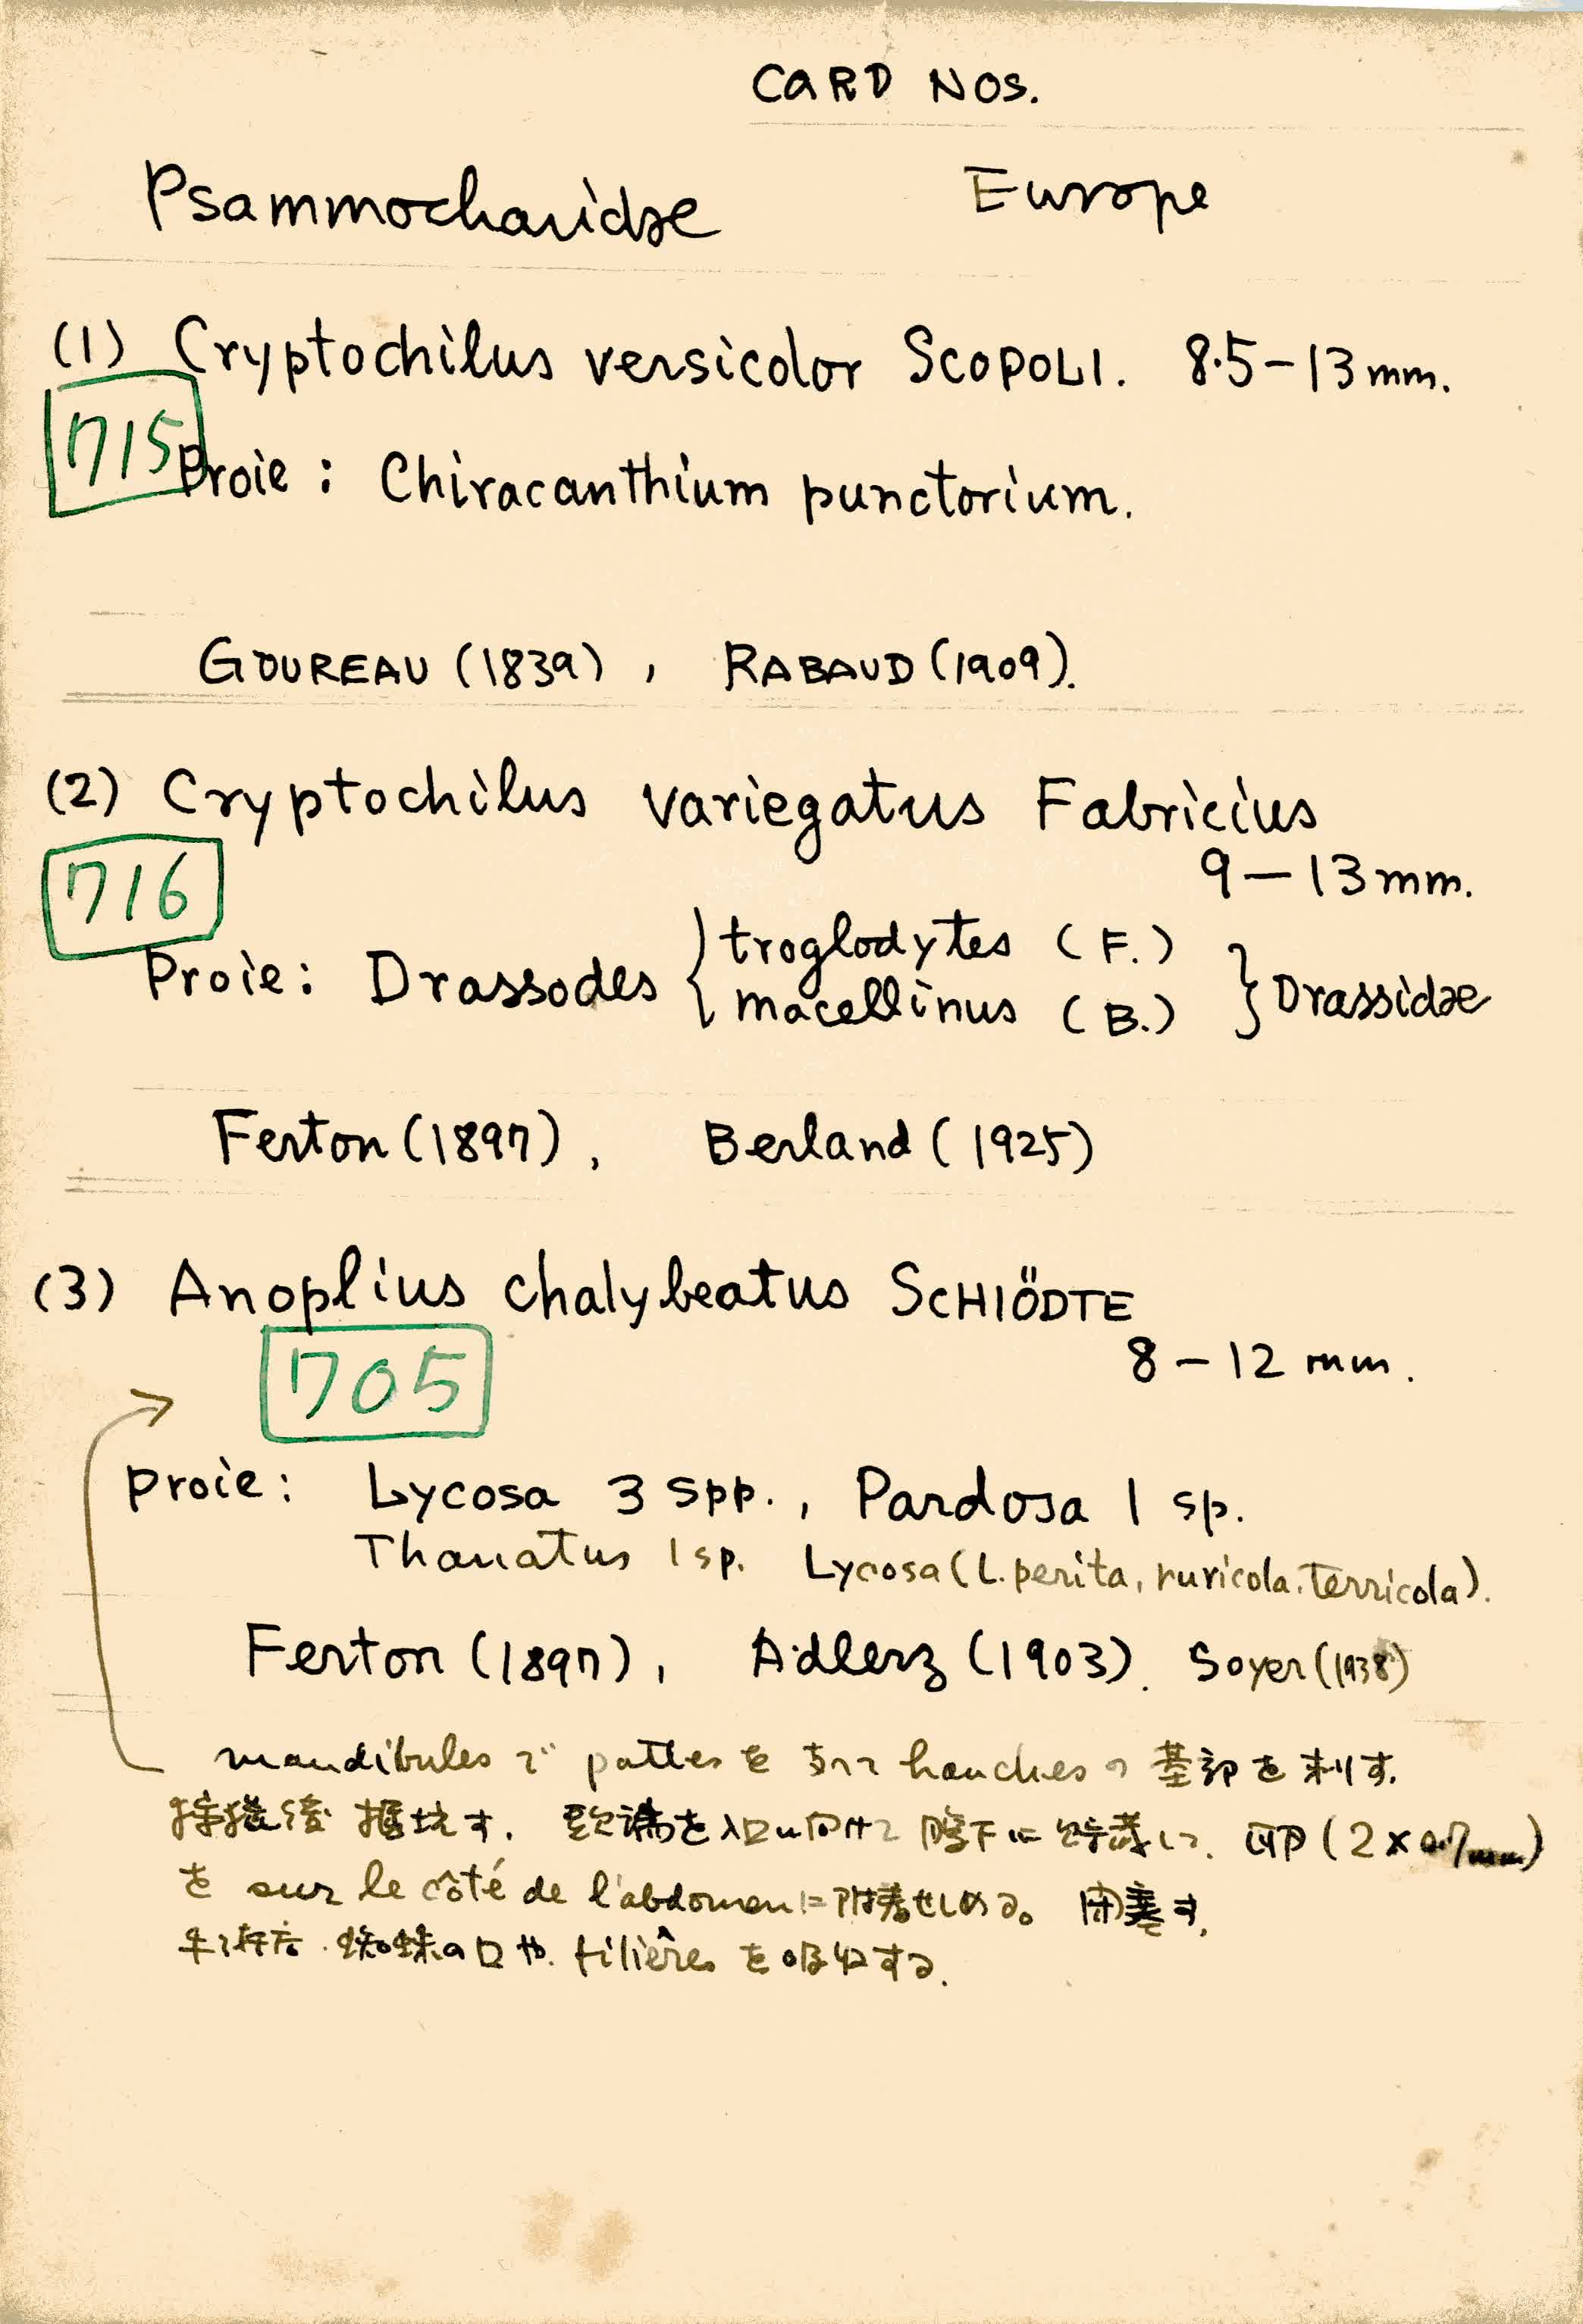 CARD NOS.
Psammocharidae Europe
(1) Cryptochilus versicolor SCOPOLI. 8.5-13mm.
715
Proie : Chiracanthium punctorium.
GOUREAU (1839), RABAUD (1909).
(2) Cryptochilus variegatus Fabricius
9-13mm.
716
Proie: Drassodes { troglodytes (F.)
macellinus (B.) } Drassidae
Ferton (1897), Berland (1925)
(3) Anoplius chalybeatus SCHIÖDTE
8-12 mm.
705
proie: Lycosa 3 spp., Pardosa 1 sp.
Thanatus 1 sp. Lycosa (L. perita, ruricola, terricola).
Ferton (1897), Adlerz (1903). Soyer (1938)
mandibules で pattes を hanches の基部を刺す.
後 掘坑す. を入口に向けて 下に して. 卵 (2×0.7mm)
を sur le côté de l'abdomen に附着せしめる。 閉塞す.
蜘蛛の口や filières を吸収する.